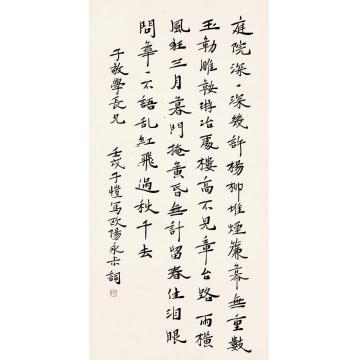 庭院深〻深幾許楊柳堆煙簾幕無重數
玉勒雕鞍遊冶處樓高不見章台路雨橫
風狂三月暮門掩黃昏無計留春住淚眼
問華〻不語乱紅飛過秋千去
子敌學長兄
壬戌子愷写欧陽永叔詞